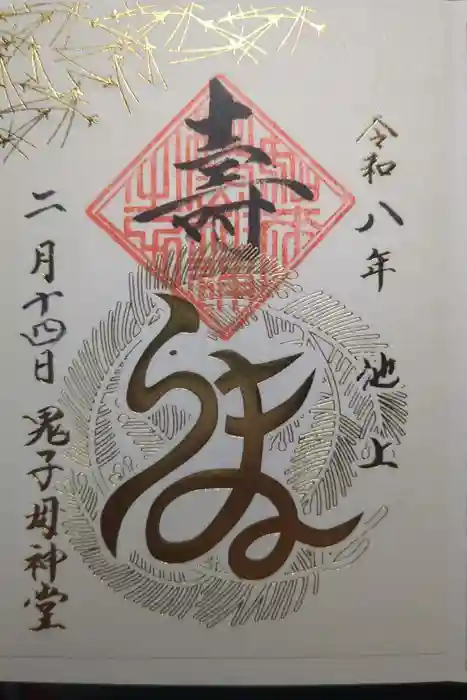 令和八年 池上
寿
うま
二月十四日 鬼子母神堂